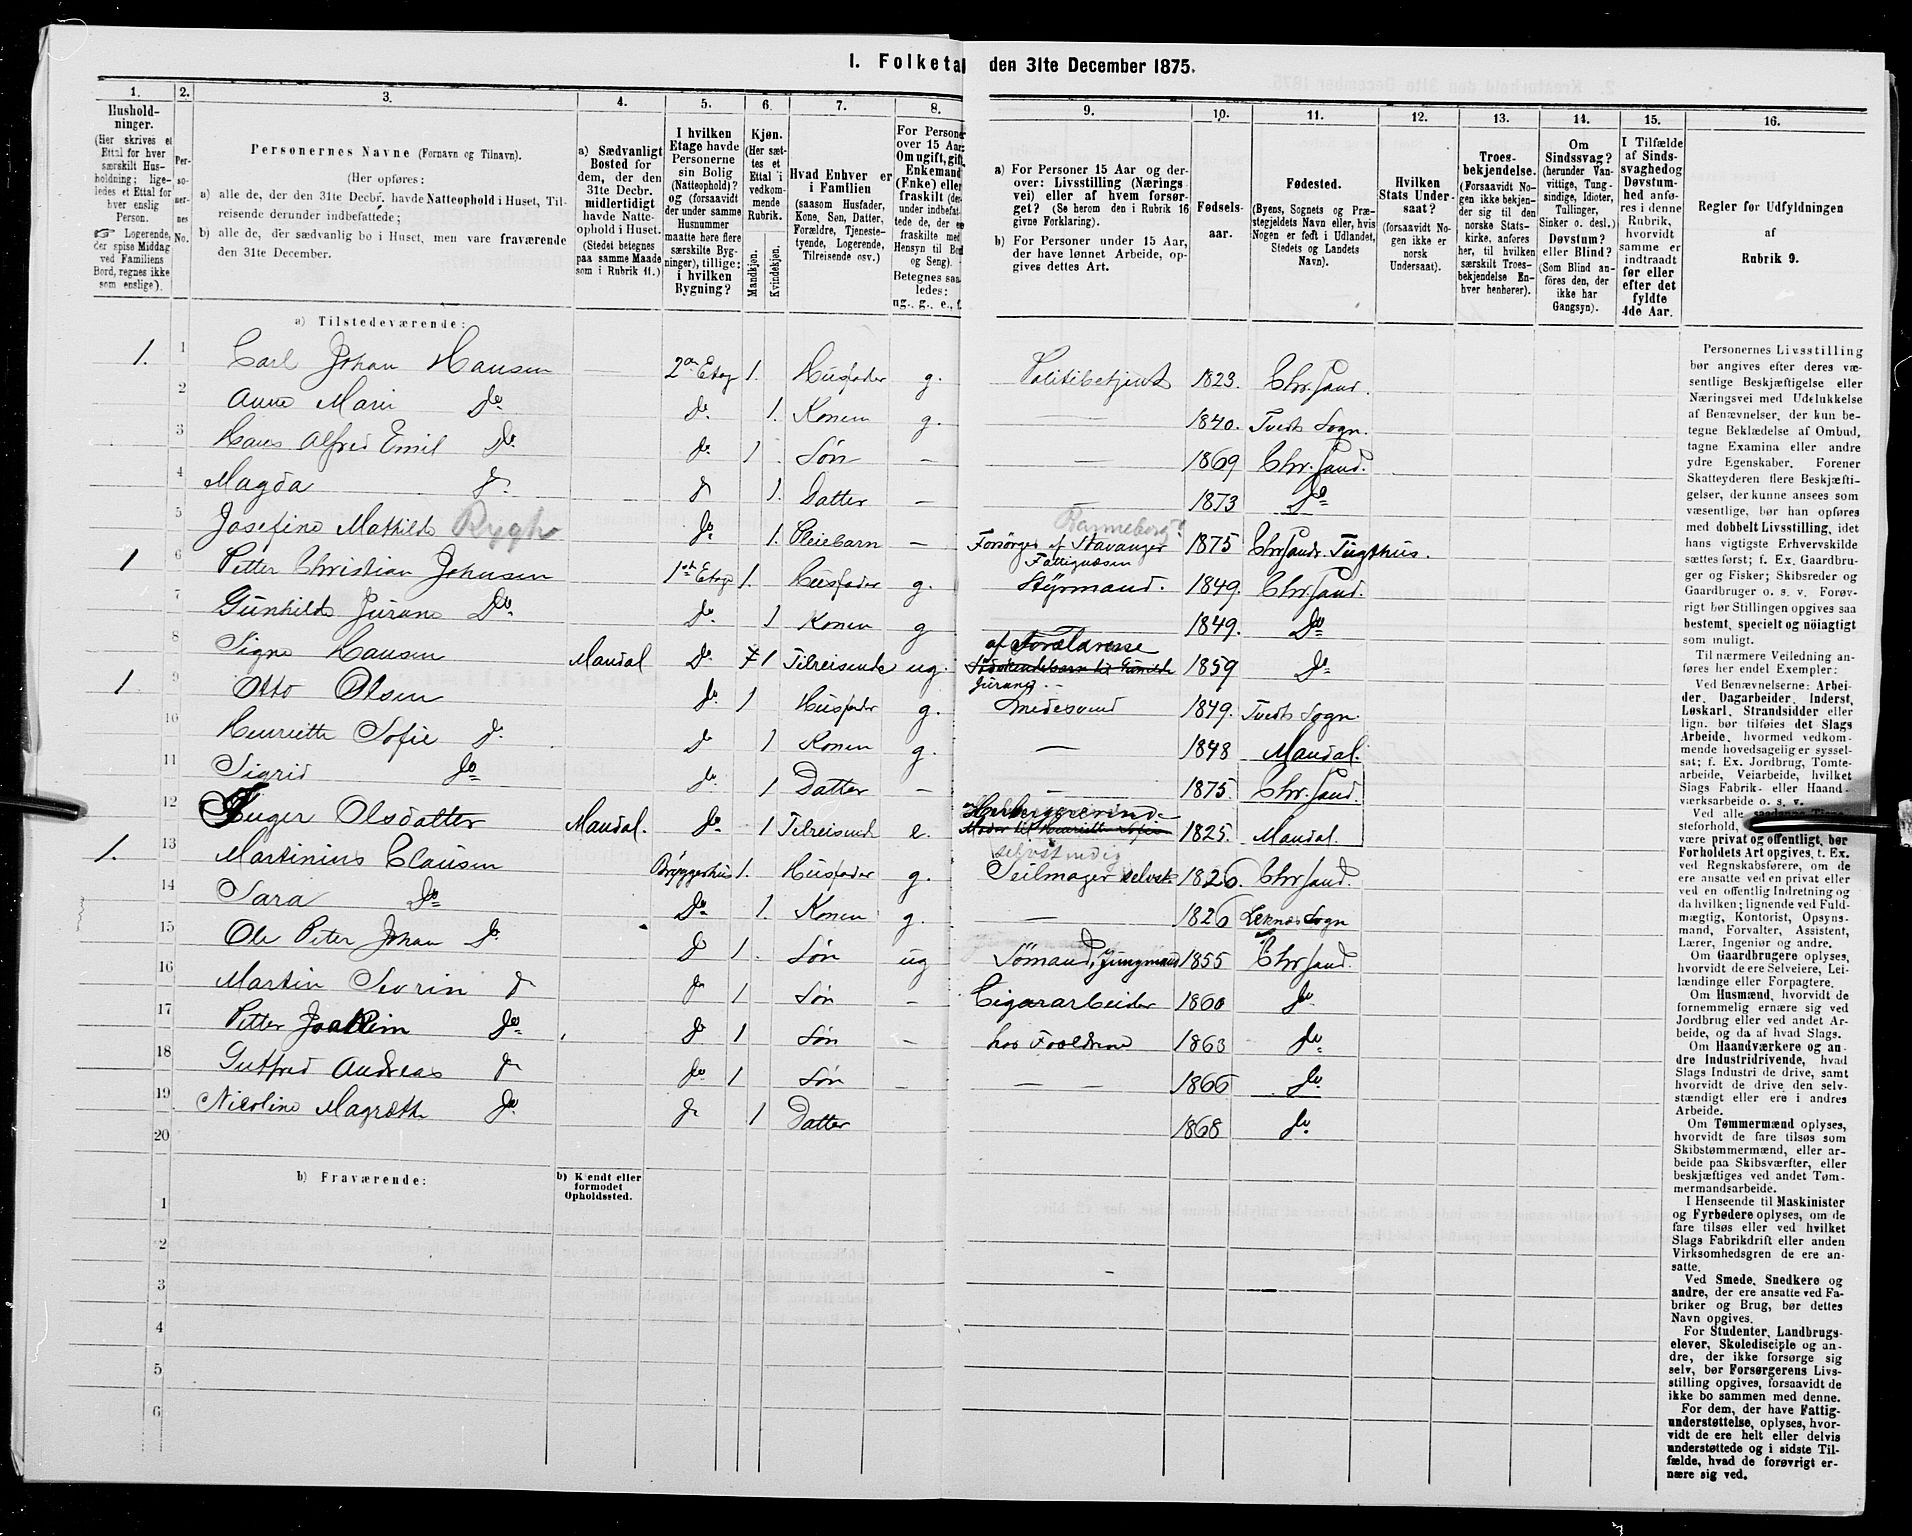 1. Folketal den 31te December 1875.
1. 2. 3. 4. 5. 6. 7. 8. 9. 10. 11. 12. 13. 14. 15. 16.
Hushold-
ninger.
(Her skrives et
Ettal for hver
særskilt Hus-
holdning; lige-
ledes et Ettal for
hver enslig
Person.
☞ Logerende,
der spise Middag
ved Familiens
Bord, regnes ikke
som enslige).
Per-
so-
ner-
nes
No.
Personernes Navne (Fornavn og Tilnavn).
(Her opføres:
a) alle de, der den 31te Decbr. havde Natteophold i Huset, Til-
reisende derunder indbefattede;
b) alle de, der sædvanlig bo i Huset, men vare fraværende
den 31te December.
a) Sædvanligt
Bosted for
dem, der den
31te Decbr.
midlertidigt
havde Natte-
ophold i Huset.
(Stedet betegnes
paa samme Maade
som i Rubrik 11.)
I hvilken
Etage havde
Personerne
sin Bolig
(Natteophold)?
og (forsaavidt
der under samme
Husnummer
maatte høre flere
særskilte Byg-
ninger), tillige:
i hvilken
Bygning?
Kjøn.
(Her sæt-
tes et
Ettal i
vedkom-
mende
Rubrik.
Mandkjøn.
Kvindekjøn.
Hvad Enhver er
i Familien
(saasom Husfader,
Kone, Søn, Datter,
Forældre, Tjeneste-
tyende, Logerende,
Tilreisende osv.)
For Personer
over 15 Aar:
Om ugift, gift,
Enkemand
(Enke) eller
fraskilt (der-
under indbefat-
tede de, der ere
fraskilte med
Hensyn til Bord
og Seng).
Betegnes saa-
ledes:
ug., g., e., f.
a) For Personer 15 Aar og der-
over: Livsstilling (Nærings
vei) eller af hvem forsør-
get? (Se herom den i Rubrik 16
givne Forklaring).
b) For Personer under 15 Aar,
der have lønnet Arbeide, op-
gives dettes Art.
Fødsels-
aar.
Fødested.
(Byens, Sognets og Præ-
stegjeldets Navn eller, hvis
Nogen er født i Udlandet,
Stedets og Landets
Navn).
Hvilken
Stats Under-
saat?
(forsaavidt No-
gen ikke er
norsk
Undersaat).
Troes-
bekjendelse.
(Forsaavidt No-
gen ikke bekjen-
der sig til den
norske Stats-
kirke, anføres
her, til hvilken
særskilt Troes-
bekjendelse En-
hver henhører).
Om
Sindssvag?
(herunder Van-
vittige, Tung-
sindige, Idioter,
Tullinger,
Sinker o. desl.)
Døvstum?
eller Blind?
(Som Blind an-
føres den, der
ikke har
Gangsyn).
I Tilfælde
af Sinds-
svaghed og
Døvstum-
hed anfø-
res i denne
Rubrik,
hvorvidt
samme er
indtraadt
før eller
efter det
fyldte
4de Aar.
Regler for Udfyldningen
af
Rubrik 9.
a) Tilstedeværende:
1. 1 Carl Johan Hansen 2den Etag 1. Husfader g. Politibetjent 1823. Chr.sand.
2 Anne Marie Do Do. 1. Konen g. — 1840. Tveds Sogn.
3 Hans Alfred Emil Do. Do. 1 Søn — — 1869 Chr.sand.
4 Magda Do. Do 1. Datter — — 1873 Do
5 Josefine Mathilde Rygh Do. 1. Pleiebarn — Forsørges af Stavanger Fattigvæsen 1875 Chrsands Tugthus.
1 6 Petter Christian Johnsen 1ste Etage 1. Husfader g. Styrmand. 1849. Chr.sand.
7 Gunhilde Jurane Do. Do. 1 Konen g — 1849. Do
8 Signe Hansen Mandal Do. 1 Tilreisende ug. af Forældrene 1859 Do
1 9 Otto Olsen Do. 1 Husfader g. 1849. Tveds Sogn.
10 Henriette Sofie Do. Do 1 Konen g. — 1848 Mandal.
11 Sigrid Do Do. 1 Datter — — 1875. Chr.sand.
12 Inger Olsdatter Mandal. Do. 1 Tilreisende e. 1825. Mandal.
1. 13 Martinius Clausen Bryggerhus 1. Husfader g. Seilmager selvst. 1826. Chr.sand.
14 Sara Do Do. 1. Konen g. — 1826 Sogn
15 Ole Peter Johan Do. Do 1. Søn ug Sømand, Jungmand 1855 Chr.sand.
16 Martin Severin Do Do 1 Søn — Cigararbeider 1860 Do.
17 Petter Joakim Do. Do 1 Søn — hos Forældrene 1863 Do.
18 Gutfred Andreas Do Do. 1 Søn — — — 1866 Do
19 Nicoline Magrethe Do. Do 1 Datter 1868 Do.
20
b) Fraværende:
b) Kjendt eller
formodet
Opholdssted.
1
2
3
4
5
6
Personernes Livsstilling
bør angives efter deres væ-
sentlige Beskjæftigelse eller
Næringsvei med Udelukkelse
af Benævnelser, der kun be-
tegne Beklædelse af Ombud,
tagne Examina eller andre
ydre Egenskaber. Forener
Skatteyderen flere Beskjæfti-
gelser, der kunne ansees som
væsentlige, bør han opføres
med dobbelt Livsstilling, idet
hans vigtigste Erhvervskilde
sættes først; f. Ex. Gaardbru-
ger og Fisker; Skibsreder og
Gaardbruger o. s. v. Forøv-
rigt bør Stillingen opgives saa
bestemt, specielt og nøiagtigt
som muligt.
Til nærmere Veiledning an-
føres her endel Exempler:
Ved Benævnelserne: Arbei-
der, Dagarbeider, Inderst,
Løskarl, Strandsidder eller
lign. bør tilføies det Slags
Arbeide, hvormed vedkom-
mende hovedsagelig er syssel-
sat; f. Ex. Jordbrug, Tomte-
arbeide, Veiarbeide, hvilket
Slags Fabrik- eller Haand-
værksarbeide o. s. v.
Ved alle saadanne Tjene-
steforhold,
være privat og offentligt, bør
Forholdets Art opgives, t. Ex.
ved Regnskabsførere, om de
ere ansatte ved en privat eller
ved en offentlig Indretning og
da hvilken; lignende ved Fuld-
mægtig, Kontorist, Opsyns-
mand, Forvalter, Assistent,
Lærer, Ingeniør og andre.
Om Gaardbrugere oplyses,
hvorvidt de ere Selveiere, Lei-
lændinge eller Forpagtere.
Om Husmænd, hvorvidt de
fornemmelig ernære sig ved
Jordbrug eller ved andet Ar-
beide, og da af hvad Slags.
Om Haandværkere og an-
dre Industridrivende, hvad
Slags Industri de drive, samt
hvorvidt de drive den selv-
stændigt eller ere i andres
Arbeide.
Om Tømmermænd oplyses,
hvorvidt de fare tilsøs som
Skibstømmermænd, eller ar-
beide paa Skibsværfter, eller
beskjæftiges ved andet Tøm-
mermandsarbeide.
I Henseende til Maskinister
og Fyrbødere oplyses, om de
fare tilsøs eller ved hvilket
Slags Fabrikdrift eller anden
Virksomhedsgren de ere an-
satte.
Ved Smede, Snedkere og
andre, der ere ansatte ved Fa-
briker og Brug, bør dettes
Navn opgives.
For Studenter, Landbrugs-
elever, Skoledisciple og an-
dre, der ikke forsørge sig
selv, bør Forsørgerens Livs-
stilling opgives, forsaavidt de
ikke bo sammen med denne.
For dem, der have Fattig-
understøttelse, oplyses, hvor-
vidt de ere helt eller delvis
understøttede og i sidste Til-
fælde, hvad de forøvrigt er-
nære sig ved.